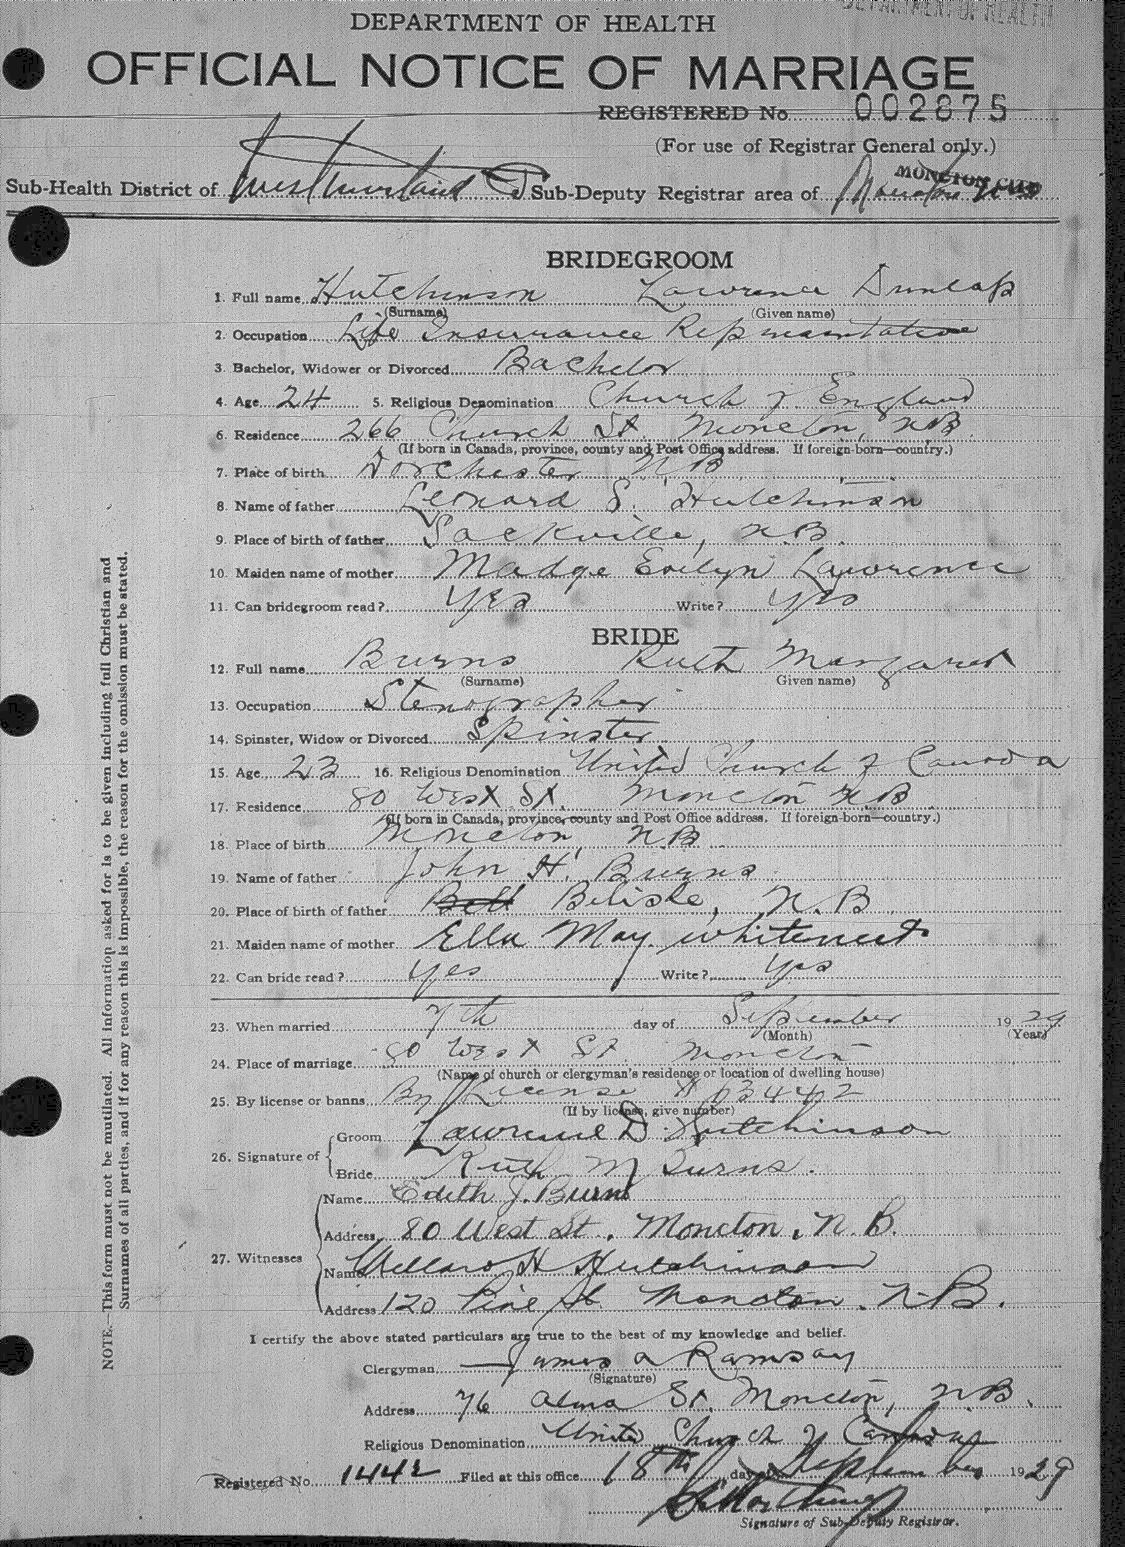 DEPARTMENT OF HEALTH
DEPARTMENT OF HEALTH
OFFICIAL NOTICE OF MARRIAGE
REGISTERED No. 002875
(For use of Registrar General only.)
MONCTON CITY
Sub-Health District of Westmorland Sub-Deputy Registrar area of Moncton
BRIDEGROOM
1. Full name Hutchinson Lawrence Dunlap
(Surname) (Given name)
2. Occupation Life Insurance Representative
3. Bachelor, Widower or Divorced Bachelor
4. Age 24 5. Religious Denomination Church of England
6. Residence 266 Church St. Moncton, N.B.
(If born in Canada, province, county and Post Office address. If foreign-born—country.)
7. Place of birth Dorchester N.B.
8. Name of father Leonard S. Hutchinson
9. Place of birth of father Sackville, N.B.
10. Maiden name of mother Madge Evelyn Lawrence
11. Can bridegroom read? Yes Write? Yes
BRIDE
12. Full name Burns Ruth Margaret
(Surname) Given name)
13. Occupation Stenographer
14. Spinster, Widow or Divorced Spinster
15. Age 23 16. Religious Denomination United Church of Canada
17. Residence 80 West St. Moncton N.B.
(If born in Canada, province, county and Post Office address. If foreign-born—country.)
18. Place of birth Moncton, N.B.
19. Name of father John H. Burns
20. Place of birth of father Bell N.B.
21. Maiden name of mother Ella May
22. Can bride read? Yes Write? Yes
23. When married 7th day of September 1929
(Month) (Year)
24. Place of marriage 80 West St. Moncton
(Name of church or clergyman's residence or location of dwelling house)
25. By license or banns By License
(If by license, give number)
26. Signature of Groom Lawrence D. Hutchinson
Bride Ruth M Burns.
27. Witnesses Name Edith J. Burns
Address 80 West St. Moncton, N.B.
Name H Hutchinson
Address 120 Pine St. Moncton. N.B.
I certify the above stated particulars are true to the best of my knowledge and belief.
Clergyman James A Ramsay
(Signature)
Address 76 Alma St. Moncton, N.B.
Religious Denomination United Church of Canada
Registered No. 1442 Filed at this office 18th day of September 1929
Signature of Sub-Deputy Registrar.
NOTE.—This form must not be mutilated. All information asked for is to be given including full Christian and
Surnames of all parties, and if for any reason this is impossible, the reason for the omission must be stated.